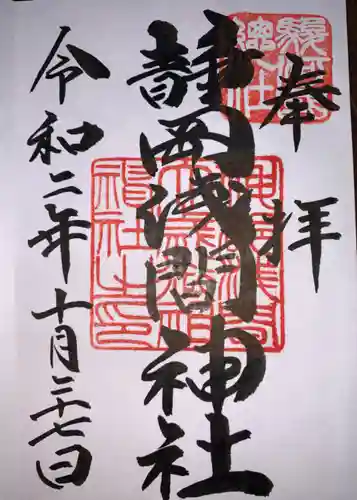 奉拝
駿河
總社
静岡浅間神社
令和二年十月二十七日